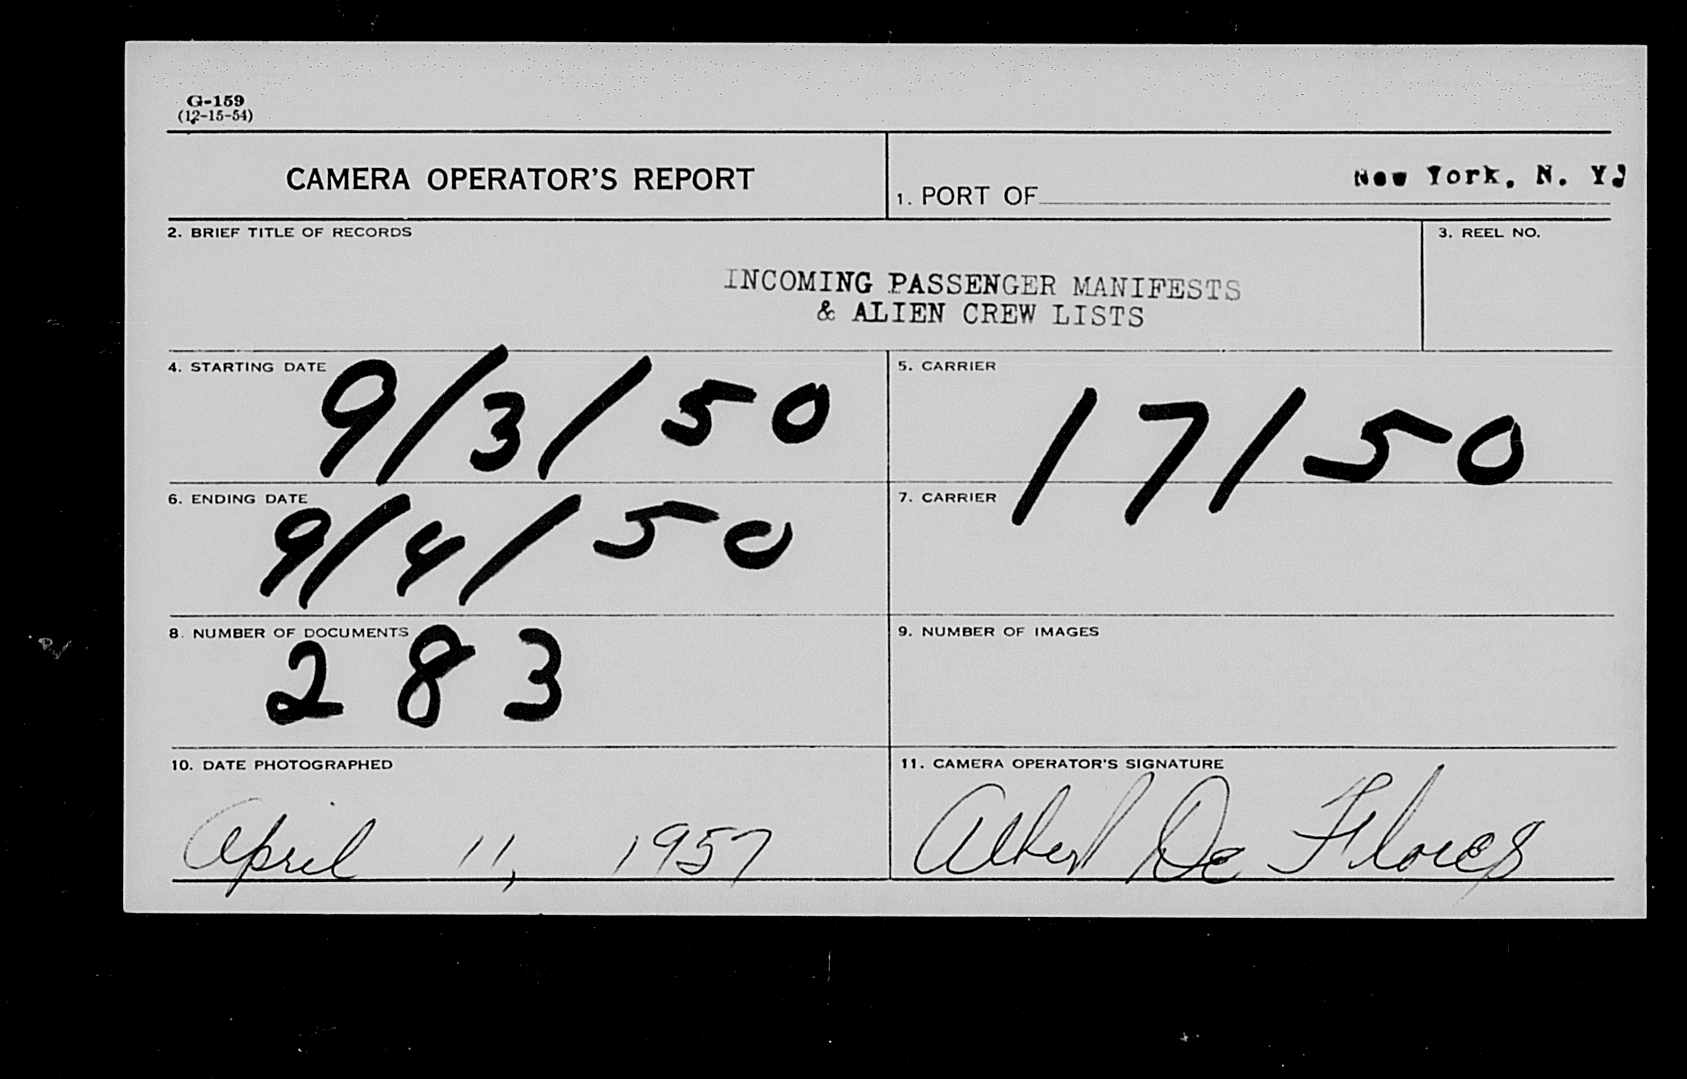 G-159
(12-15-54)
CAMERA OPERATOR'S REPORT
1. PORT OF New York, N. Y.
2. BRIEF TITLE OF RECORDS
INCOMING PASSENGER MANIFESTS
& ALIEN CREW LISTS
3. REEL NO.
4. STARTING DATE 9/3/50
5. CARRIER /7/50
6. ENDING DATE 9/4/50
7. CARRIER
8. NUMBER OF DOCUMENTS 283
9. NUMBER OF IMAGES
10. DATE PHOTOGRAPHED
April 11, 1957
11. CAMERA OPERATOR'S SIGNATURE
Albert De Flores